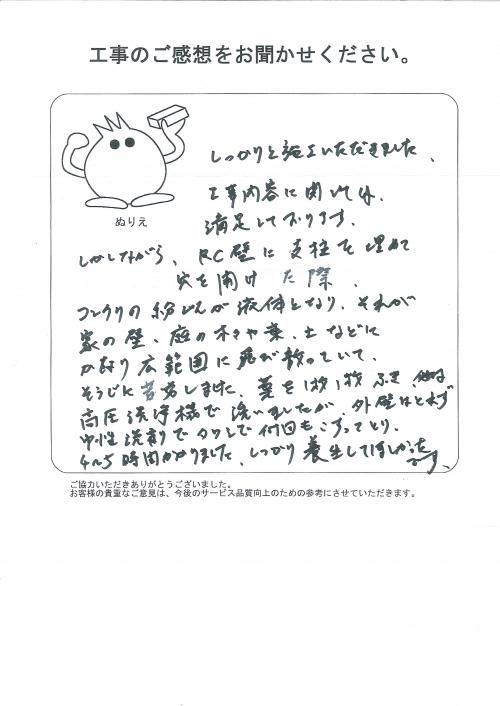 工事のご感想をお聞かせください。
しっかりと施工いただきました、
工事内容に関しては、
満足しております。
ぬりえ
しかしながら、RC壁に支柱を埋めて
穴を開けた際、
コンクリの粉じんが液体となり、それが
家の壁、庭の木々や葉、土などに
かなり広範囲に飛び散っていて、
そうじに苦労しました、葉を1枚1枚ふき、他は
高圧洗浄機で洗いましたが、外壁はとれず
中性洗剤でタワシで何回もこすってとり、
4〜5時間かかりました、しっかり養生してほしかった
です、
ご協力いただきありがとうございました。
お客様の貴重なご意見は、今後のサービス品質向上のための参考にさせていただきます。